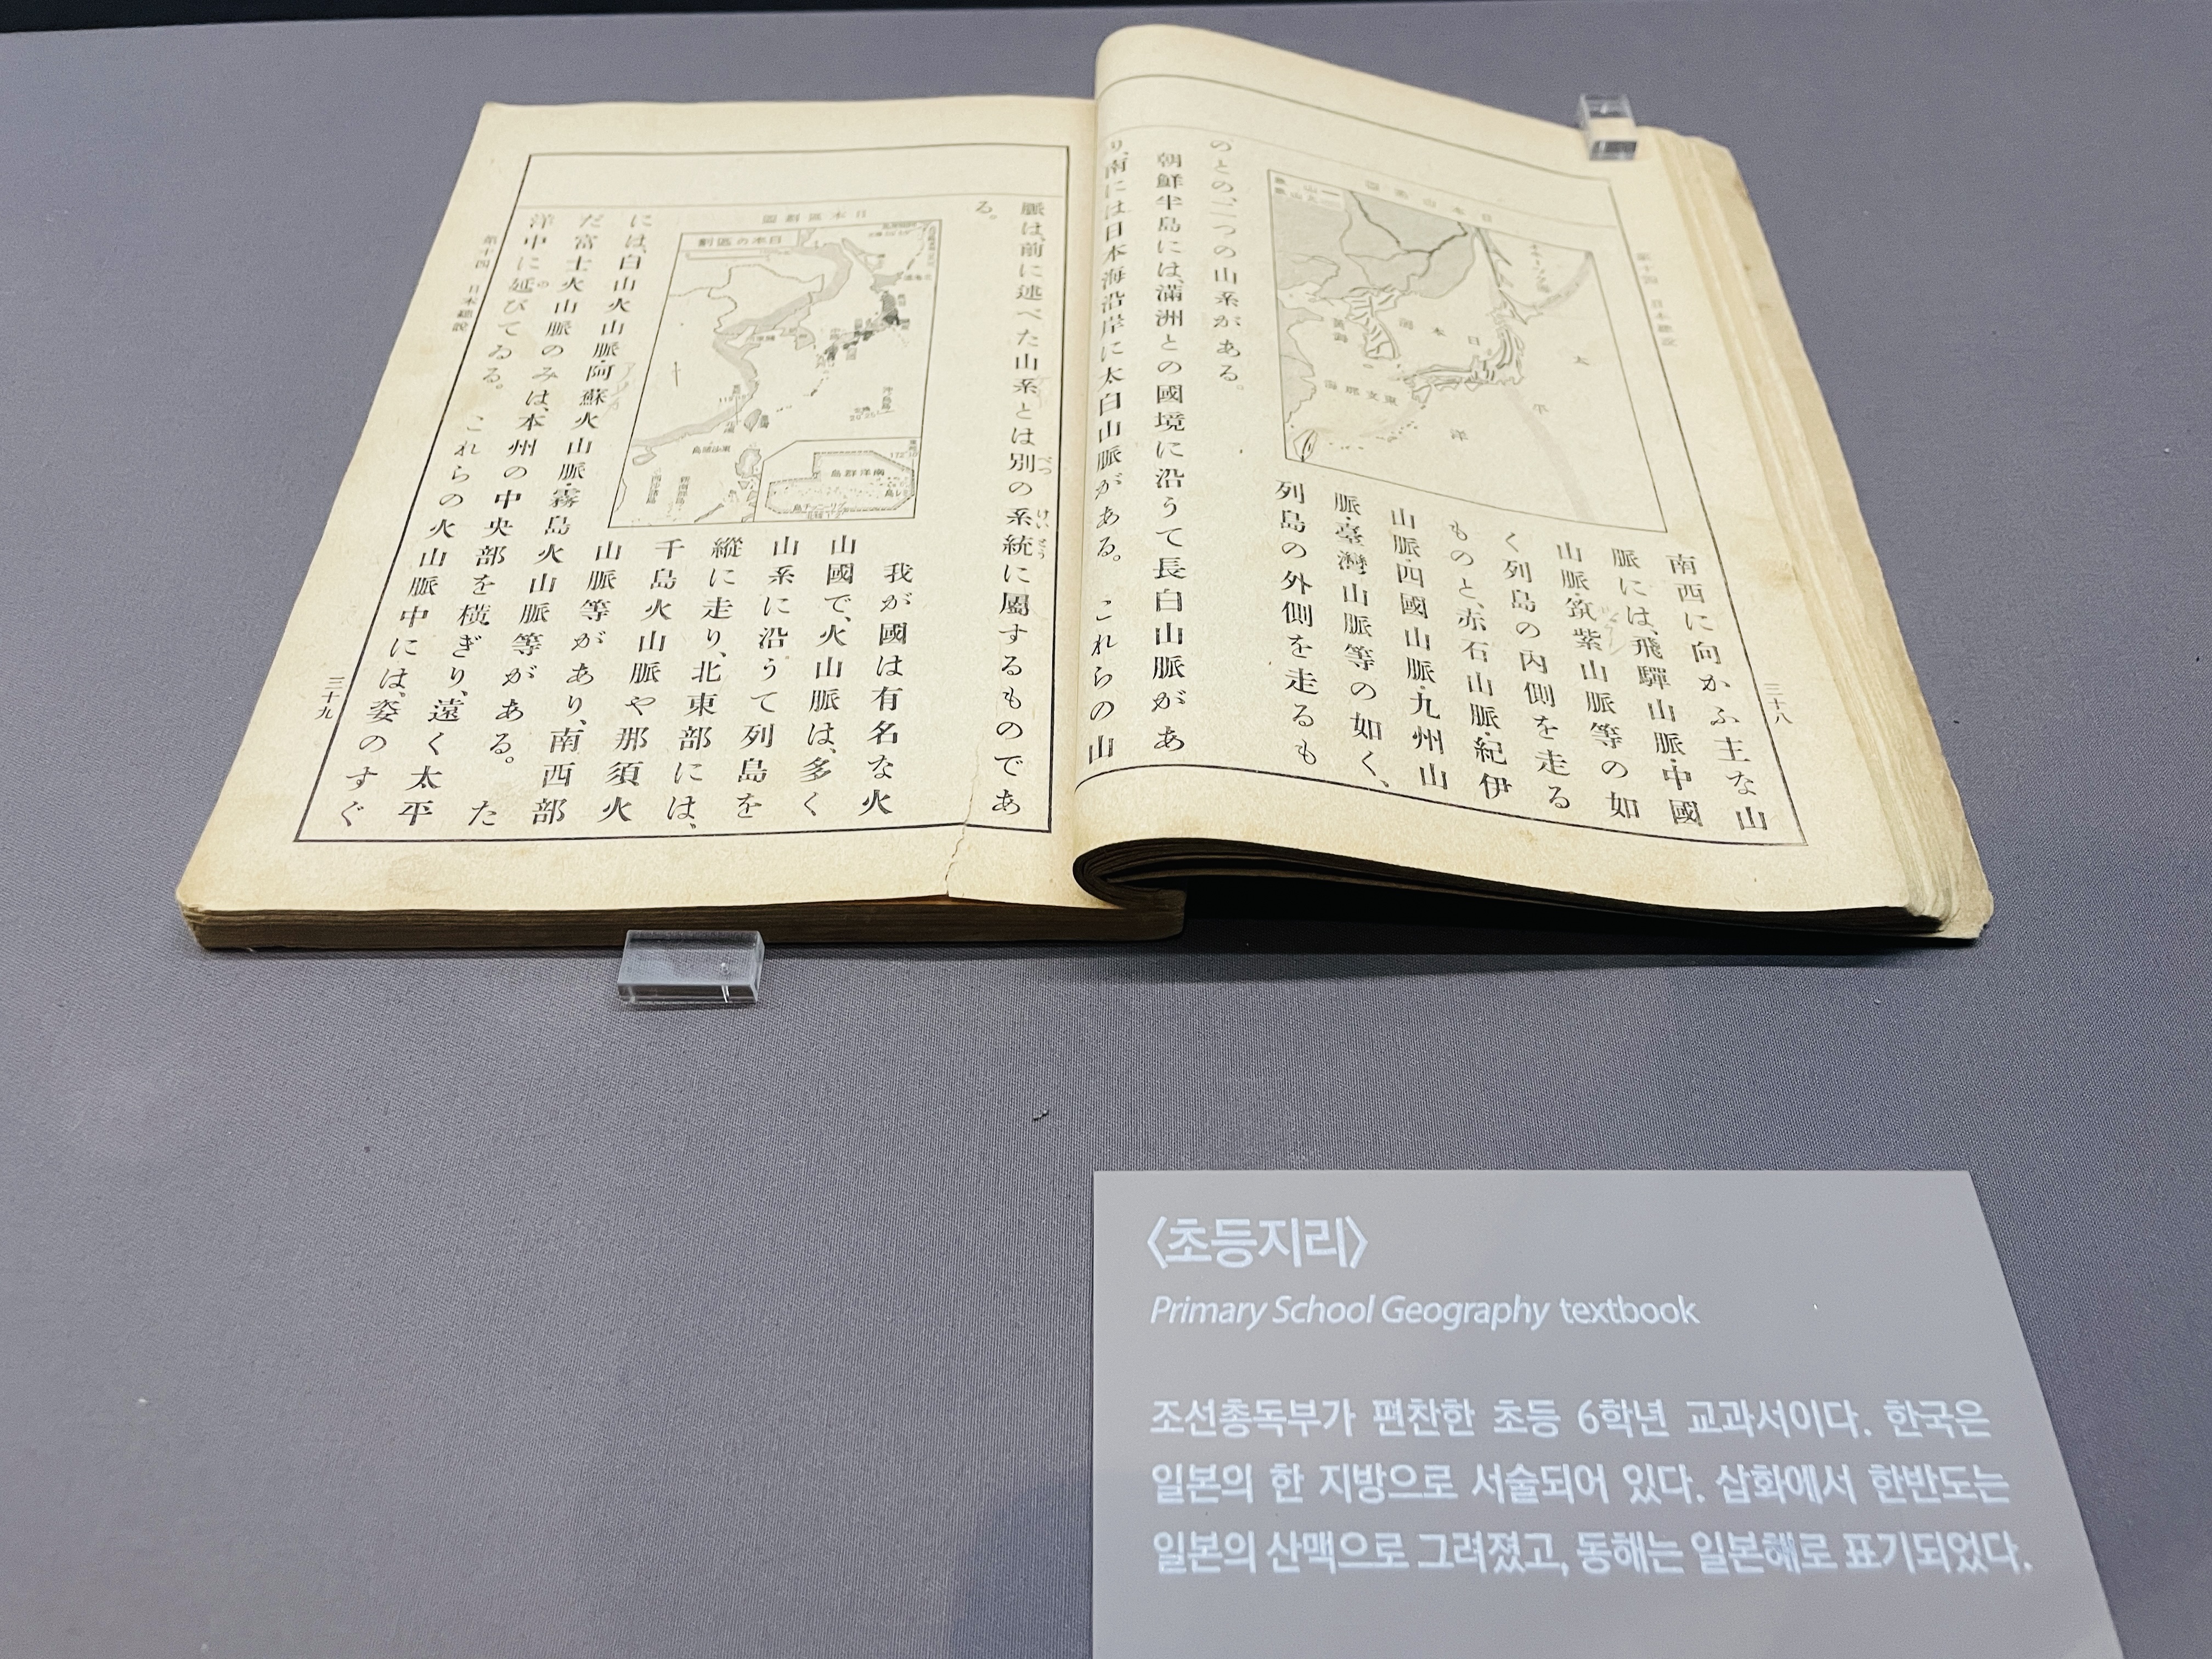 南西に向かふ主な山
脈には、飛驒山脈・中國
山脈・筑紫山脈等の如
く列島の内側を走る
ものと、赤石山脈・紀伊
山脈・四國山脈・九州山
脈・臺灣山脈等の如く、
列島の外側を走るも
のとの、二つの山系がある。
朝鮮半島には、滿洲との國境に沿うて長白山脈があ
り、南には日本海沿岸に太白山脈がある。これらの山
三十八
太
平
洋
日
本
海
黃海
東支那海
脈は、前に述べた山系とは別の系統に屬するものであ
る。
べつ
けいとう
日本區劃圖
日本の區劃
南洋群島
我が國は有名な火
山國で、火山脈は、多く
山系に沿うて列島を
縱に走り、北東部には、
千島火山脈や那須火
山脈等があり、南西部
には、白山火山脈・阿蘇火山脈・霧島火山脈等がある。た
だ富士火山脈のみは、本州の中央部を橫ぎり、遠く太平
洋中に延びてゐる。これらの火山脈中には、姿のすぐ
の
第十四 日本總說
三十九
〈초등지리〉
Primary School Geography textbook
조선총독부가 편찬한 초등 6학년 교과서이다. 한국은
일본의 한 지방으로 서술되어 있다. 삽화에서 한반도는
일본의 산맥으로 그려졌고, 동해는 일본해로 표기되었다.